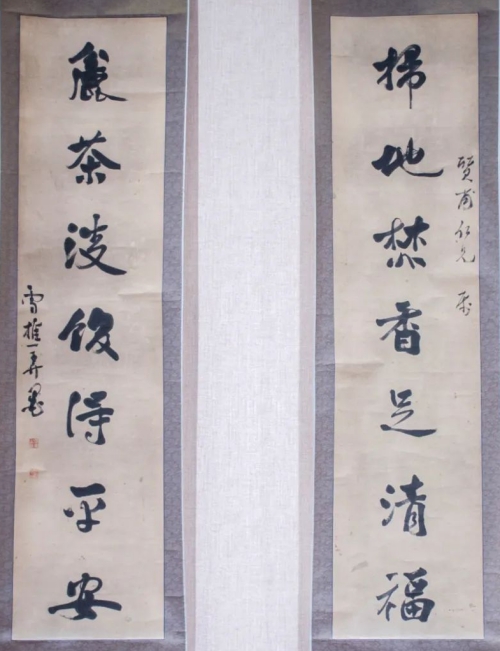 掃地焚香足清福
賢甫仁兄
麄茶淡飯得平安
雪樵弄墨